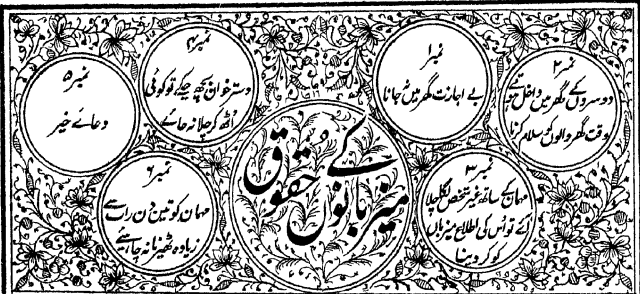 میزبانوں کے حقوق
نمبر ۱
بے اجازت گھر میں نہ جانا
نمبر ۲
دوسروں کے گھر میں داخل ہوتے
وقت گھر والوں کو سلام کرنا
نمبر ۳
مہمان کے ساتھ غیر شخص لگا چلا
آئے تو اُس کی اطلاع میزباں
کو کر دینا
نمبر ۴
دسترخوان بچھ چکے تو کوئی
اُٹھ کر چلا نہ جائے
نمبر ۵
دعائے خیر
نمبر ۶
مہمان کو تین دن رات سے
زیادہ ٹھیرنا نہ چاہئے